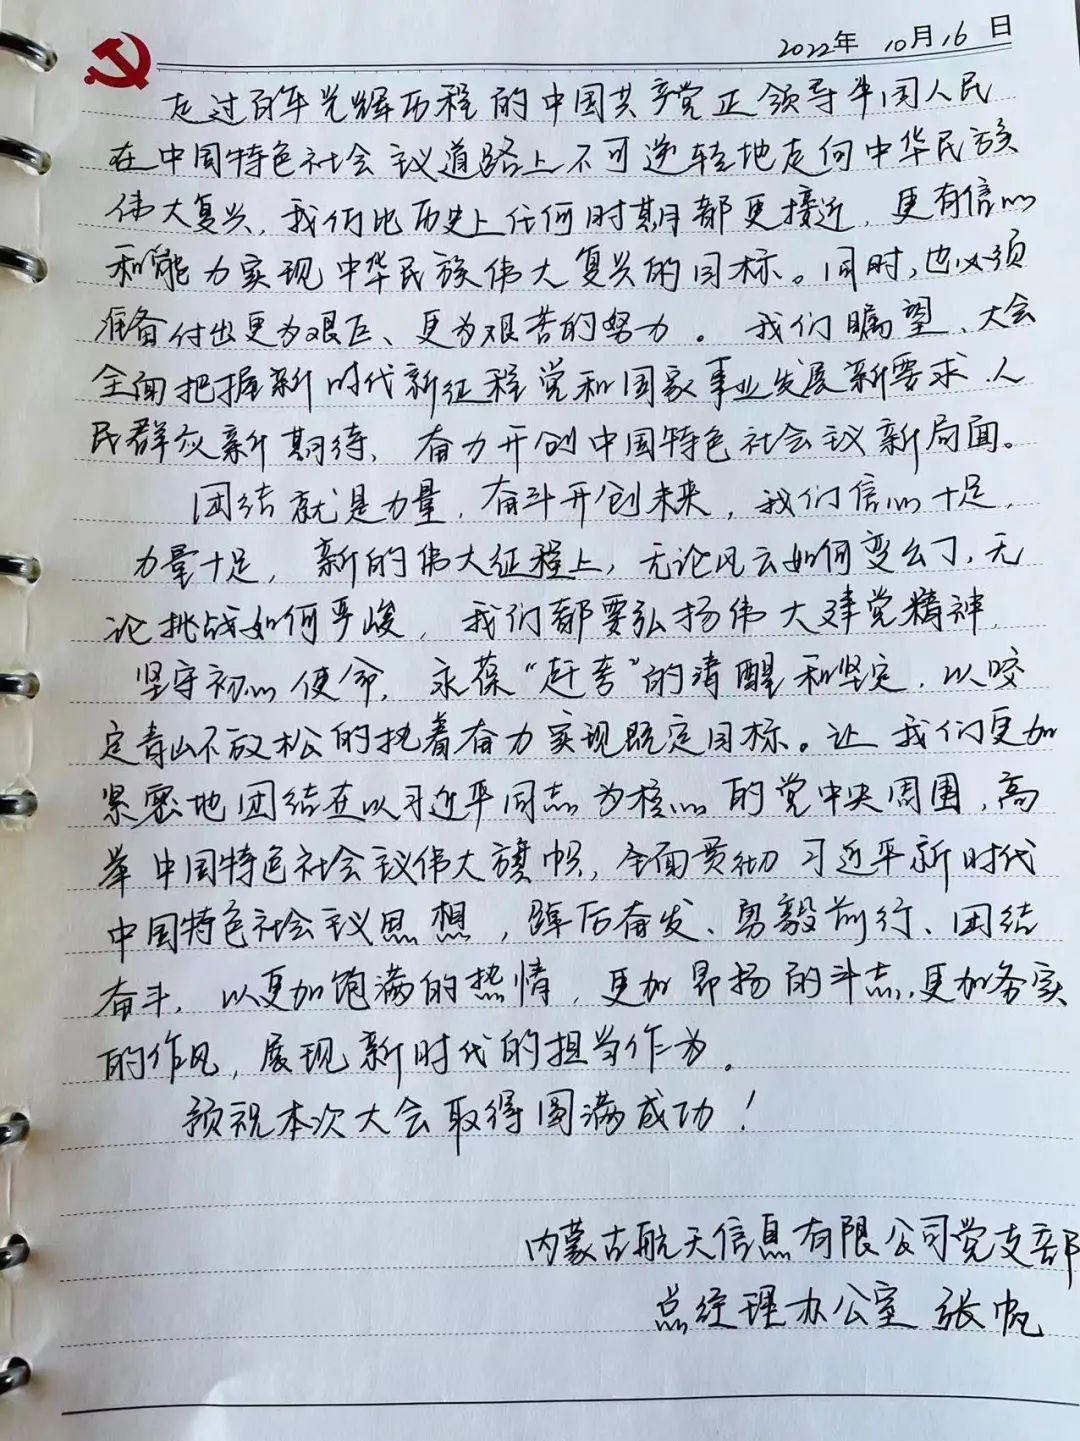 2022年 10月16日
走过百年光辉历程的中国共产党正领导中国人民
在中国特色社会主议道路上不可逆转地走向中华民族
伟大复兴，我们比历史上任何时期都更接近，更有信心
和能力实现中华民族伟大复兴的目标。同时，也必须
准备付出更为艰巨、更为艰苦的努力。我们瞩望、大会
全面把握新时代新征程党和国家事业发展新要求、人
民群众新期待，奋力开创中国特色社会主议新局面。
团结就是力量，奋斗开创未来，我们信心十足，
力量十足，新的伟大征程上，无论风云如何变幻，无
论挑战如何严峻，我们都要弘扬伟大建党精神，
坚守初心使命，永葆“赶考”的清醒和坚定，以咬
定青山不放松的执着奋力实现既定目标。让我们更加
紧密地团结在以习近平同志为核心的党中央周围，高
举中国特色社会主议伟大旗帜，全面贯彻习近平新时代
中国特色社会主议思想，踔厉奋发、勇毅前行、团结
奋斗，以更加饱满的热情，更加昂扬的斗志，更加务实
的作风，展现新时代的担当作为。
预祝本次大会取得圆满成功！
内蒙古航天信息有限公司党支部
总经理办公室 张帆